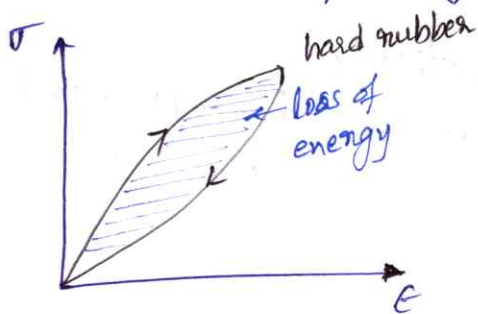 σ
hard rubber
loss of
energy
ε